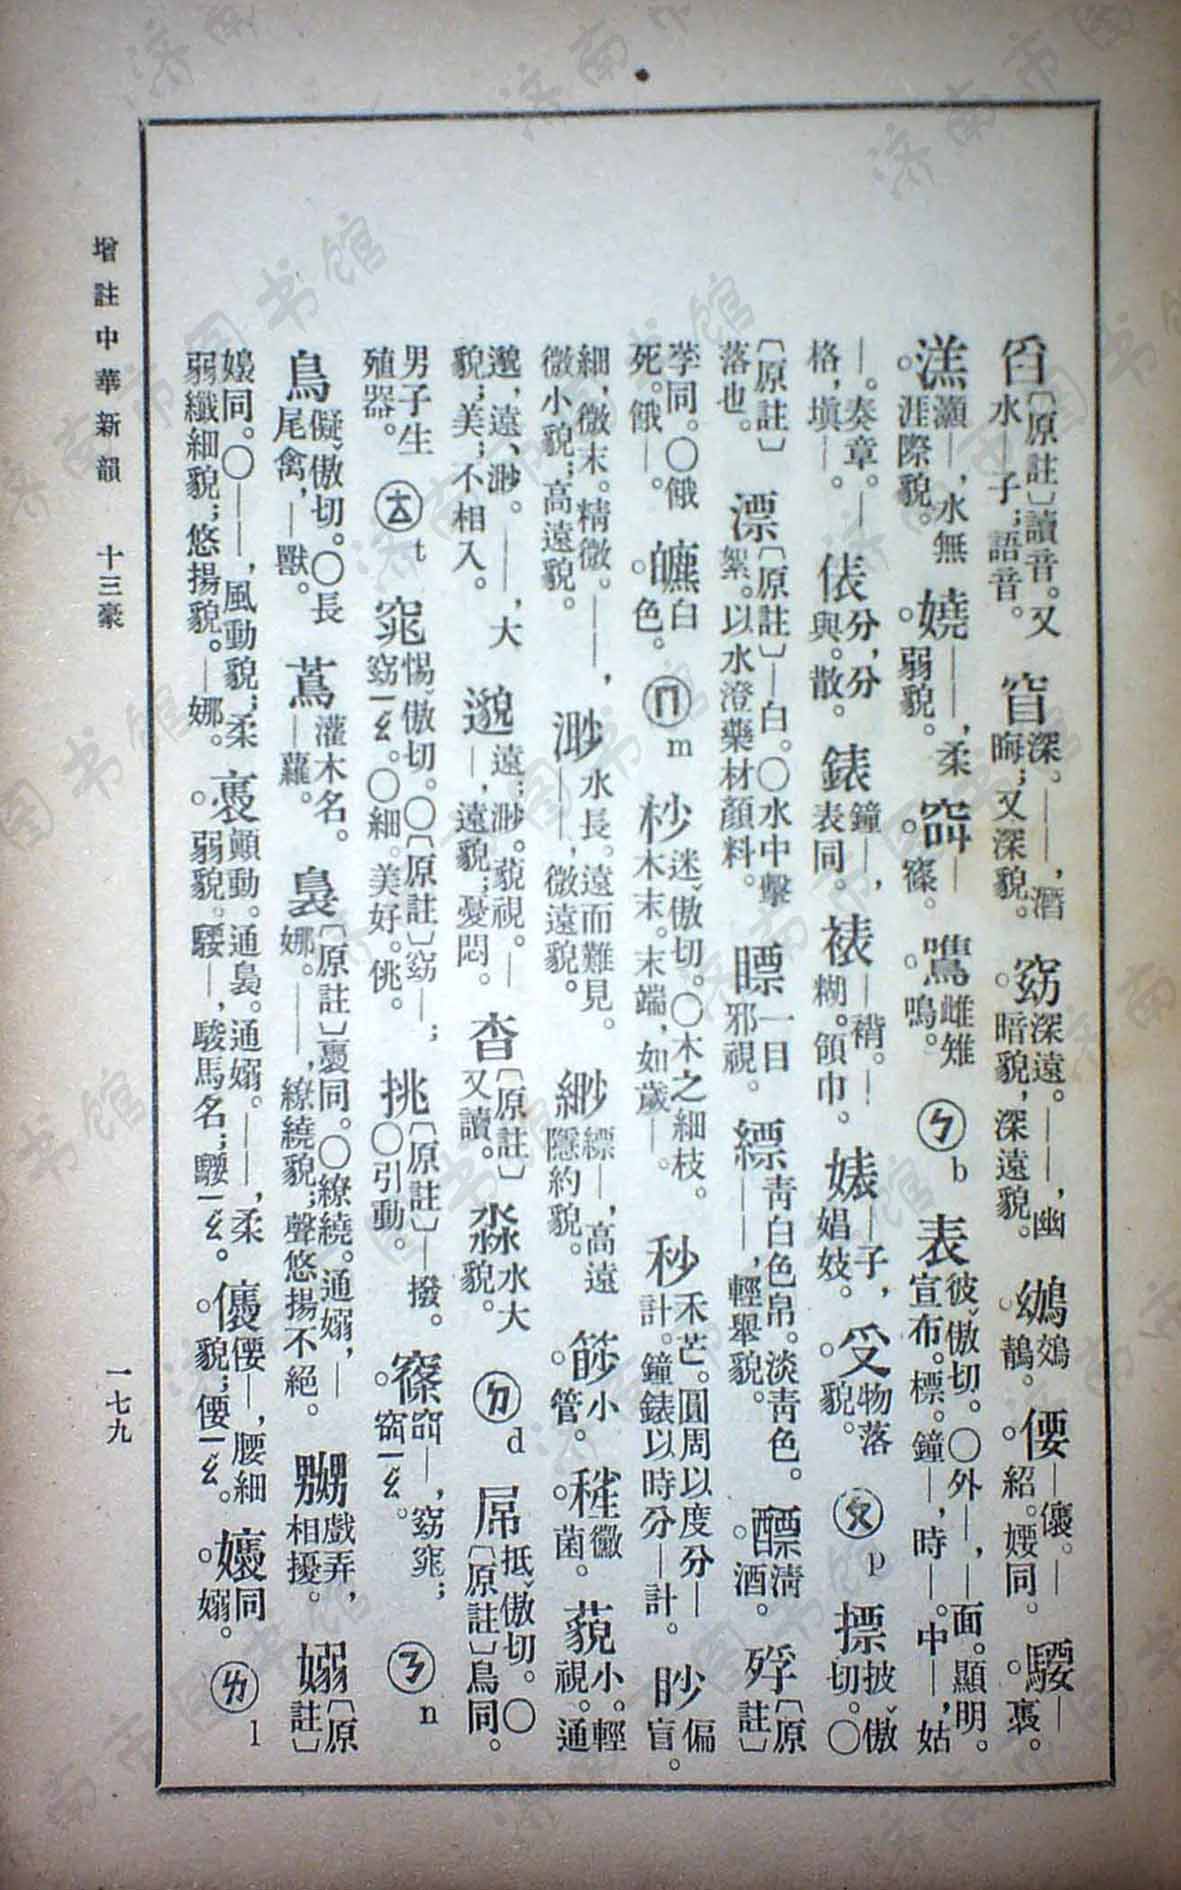 舀〔原註〕讀音。又水—子；語音。 窅深。——，潛晦；又深貌。 窈深遠。——，幽暗貌，深遠貌。 鴢鵁鶄。 偠—儴。—紹。㛐同。 騕—褭。
溔灝—，水無涯際貌。 嬈——，柔弱貌。 窅—窱。 鷕雌雉鳴。 ㄅb 表彼ˇ傲切。〇外—，—面。顯明。宣布。標。鐘—，時—。中—，姑
—。奏章。—格，塡—。 俵分，分與。散。 錶鐘—，表同。 裱—褙。—糊。領巾。 婊—子，娼妓。 受物落貌。 ㄆp 摽披ˇ傲切。〇
〔原註〕落也。 漂〔原註〕—白。〇水中擊絮。以水澄藥材顏料。 瞟一目邪視。 縹青白色帛。淡青色。——，輕舉貌。 醥淸酒。 殍〔原註〕
莩同。〇餓死。餓—。 皫白色。 ㄇm 杪迷ˇ傲切。〇木之細枝。木末。末端，如歲—。 秒禾芒。圓周以度分—計。鐘錶以時分—計。 眇偏盲。
細，微末。精微。——，微小貌；高遠貌。 渺水長。遠而難見。——，微遠貌。 緲縹—，高遠隱約貌。 篎小管。 䅺黴菌。 藐小。輕視。通
邈，遠、渺。——，大貌；美；不相入。 邈遠；渺。藐視。——，遠貌；憂悶。 杳〔原註〕又讀。 淼水大貌。 ㄉd 屌抵ˇ傲切。〇〔原註〕鳥同。
男子生殖器。 ㄊt 窕惕ˇ傲切。〇〔原註〕窈—；窈ㄧㄠˇ。〇細。美好。佻。 挑〔原註〕—撥。〇引動。 窱窅—，窈窕；窅ㄧㄠˇ。 ㄋn
鳥儗ˇ傲切。〇長尾禽，—獸。 蔦灌木名。—蘿。 裊〔原註〕褭同。〇繚繞。通嫋，—娜。——，繚繞貌；聲悠揚不絕。 嬲戲弄，相擾。 嫋〔原註〕
嬝同。〇——，風動貌；柔弱纖細貌；悠揚貌。—娜。 褭顫動。通裊。通嫋。——，柔弱貌。騕—，駿馬名；騕ㄧㄠˇ。 儴偠—，腰細貌；偠ㄧㄠˇ。 嬝同嫋。 ㄌl
增註中華新韻 十三豪
一七九